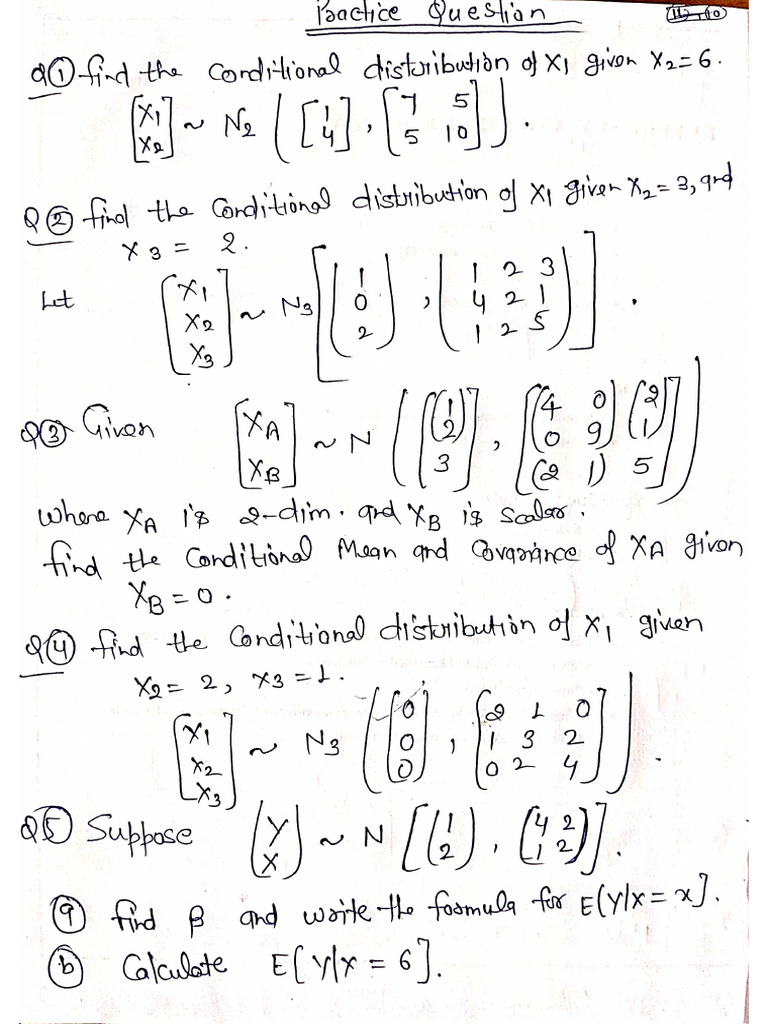 Practice Question
Q① find the Conditional distribution of X1 given X2=6.
[X1 X2] ~ N2 ([1 4], [7 5 5 10]).
Q② find the Conditional distribution of X1 given X2=3, and
X3 = 2.
Let [X1 X2 X3] ~ N3 [(1 0 2), (1 2 3 4 2 1 1 2 5)].
Q③ Given [XA XB] ~ N ([(1 2) 3], [(4 0 0 9) (2 1) (2 1) 5])
where XA is 2-dim. and XB is scalar.
find the Conditional Mean and Covariance of XA given
XB = 0.
Q④ find the Conditional distribution of X1 given
X2 = 2, X3 = 1.
[X1 X2 X3] ~ N3 ([0 0 0], [2 1 0 1 3 2 0 2 4]).
Q⑤ Suppose (Y X) ~ N [(1 2), (4 2 1 2)].
ⓐ find β and write the formula for E[Y|X = x].
ⓑ Calculate E[Y|X = 6].